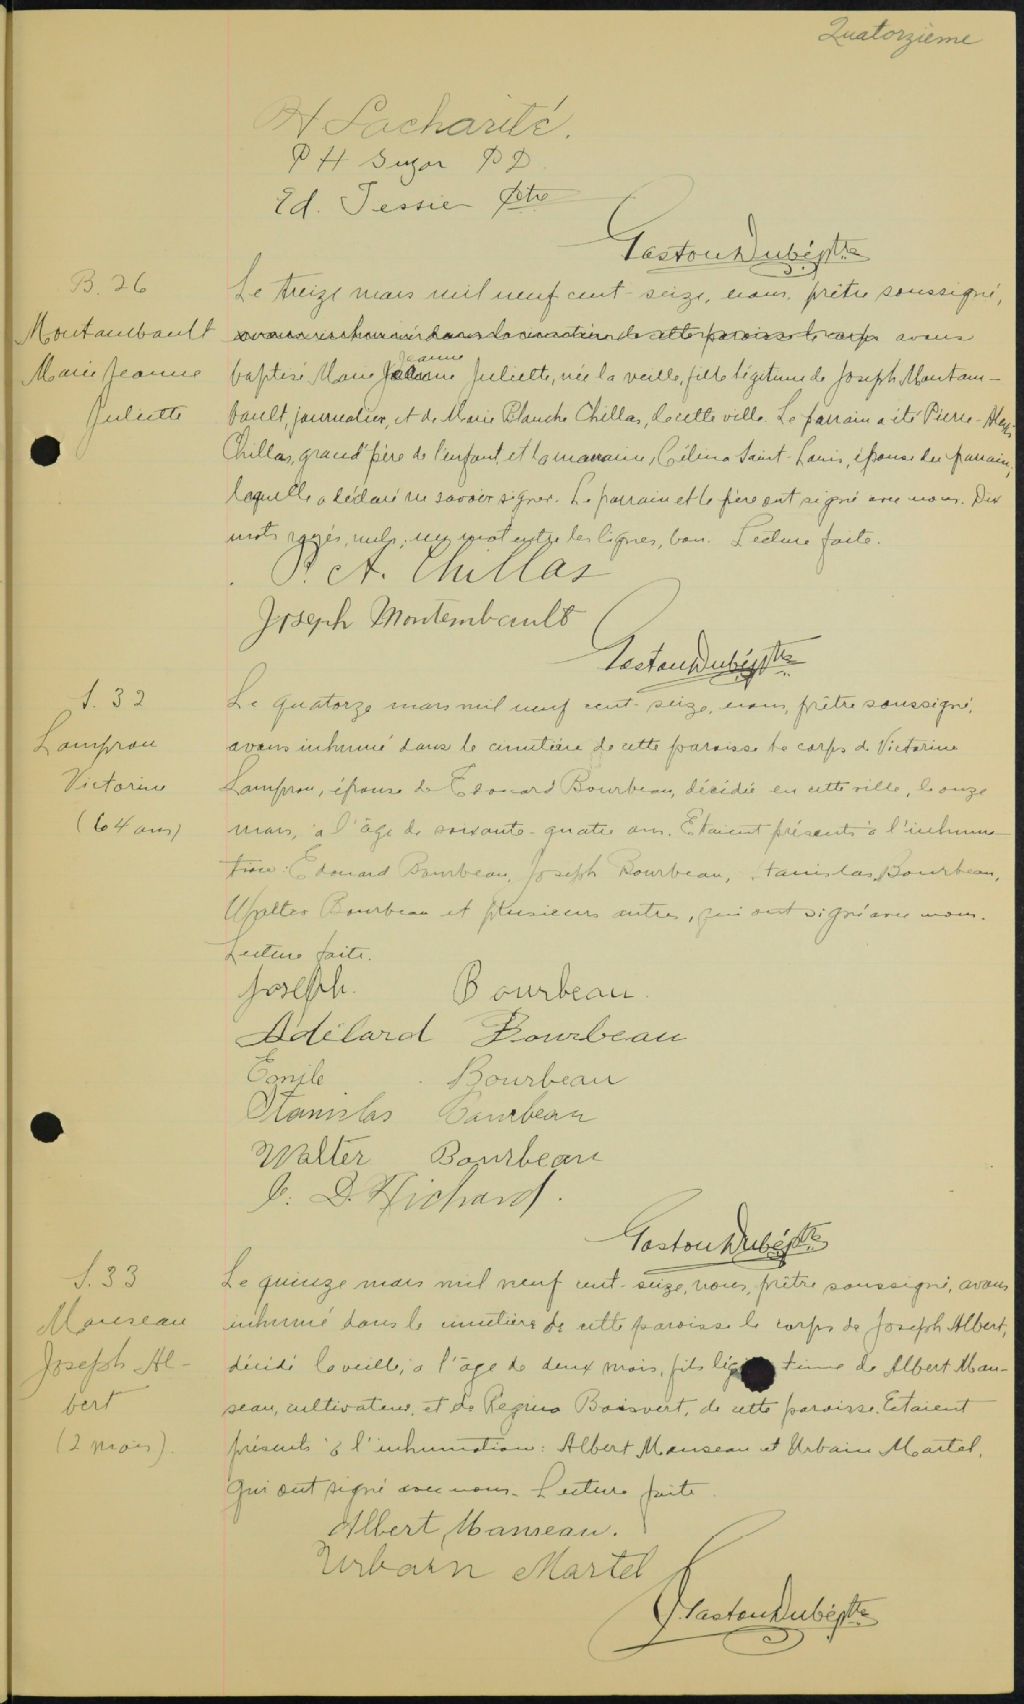 Quatorzième
H Lacharité.
P H Suzor P D
Ed. Tessier ptre
Gaston Dubé, ptre
B. 26
Montambault
Marie Jeanne
Juliette
Le treize mars mil neuf cent-seize, nous, prêtre soussigné,
avons inhumé dans le cimetière de cette paroisse le corps avons
jeanne
baptisé Marie Juliette, née la veille, fille légitime de Joseph Montam-
bault, journalier, et de Marie Blanche Chillas, de cette ville. Le parrain a été Pierre-
Chillas, grand'père de l'enfant, et la marraine, Célina Saint-Louis, épouse du parrain,
laquelle a déclaré ne savoir signer. Le parrain et le père ont signé avec nous. Dix
mots rayés, nuls; un mot entre les lignes, bon. Lecture faite.
P. A. Chillas
Joseph Montembault
Gaston Dubé, ptre
S. 32
Lampron
Victorine
(64 ans)
Le quatorze mars mil neuf cent-seize, nous, prêtre soussigné,
avons inhumé dans le cimetière de cette paroisse le corps de Victorine
Lampron, épouse de Edouard Bourbeau, décédée en cette ville, le onze
mars, à l'âge de soixante-quatre ans. Etaient présents à l'inhuma-
tion: Edouard Bourbeau, Joseph Bourbeau, Stanislas Bourbeau,
Walter Bourbeau et plusieurs autres, qui ont signé avec nous.
Lecture faite.
Joseph Bourbeau.
Adélard Bourbeau
Emile Bourbeau
Stanislas Bourbeau
Walter Bourbeau
D. Richard.
Gaston Dubé, ptre
S. 33
Manseau
Joseph Al-
bert
(2 mois).
Le quinze mars mil neuf cent-seize, nous, prêtre soussigné, avons
inhumé dans le cimetière de cette paroisse le corps de Joseph Albert,
décédé la veille, à l'âge de deux mois, fils légitime de Albert Man-
seau, cultivateur, et de Régina Boisvert, de cette paroisse. Etaient
présents à l'inhumation: Albert Manseau et Urbain Martel,
qui ont signé avec nous. Lecture faite.
Albert Manseau.
Urbain Martel
Gaston Dubé, ptre